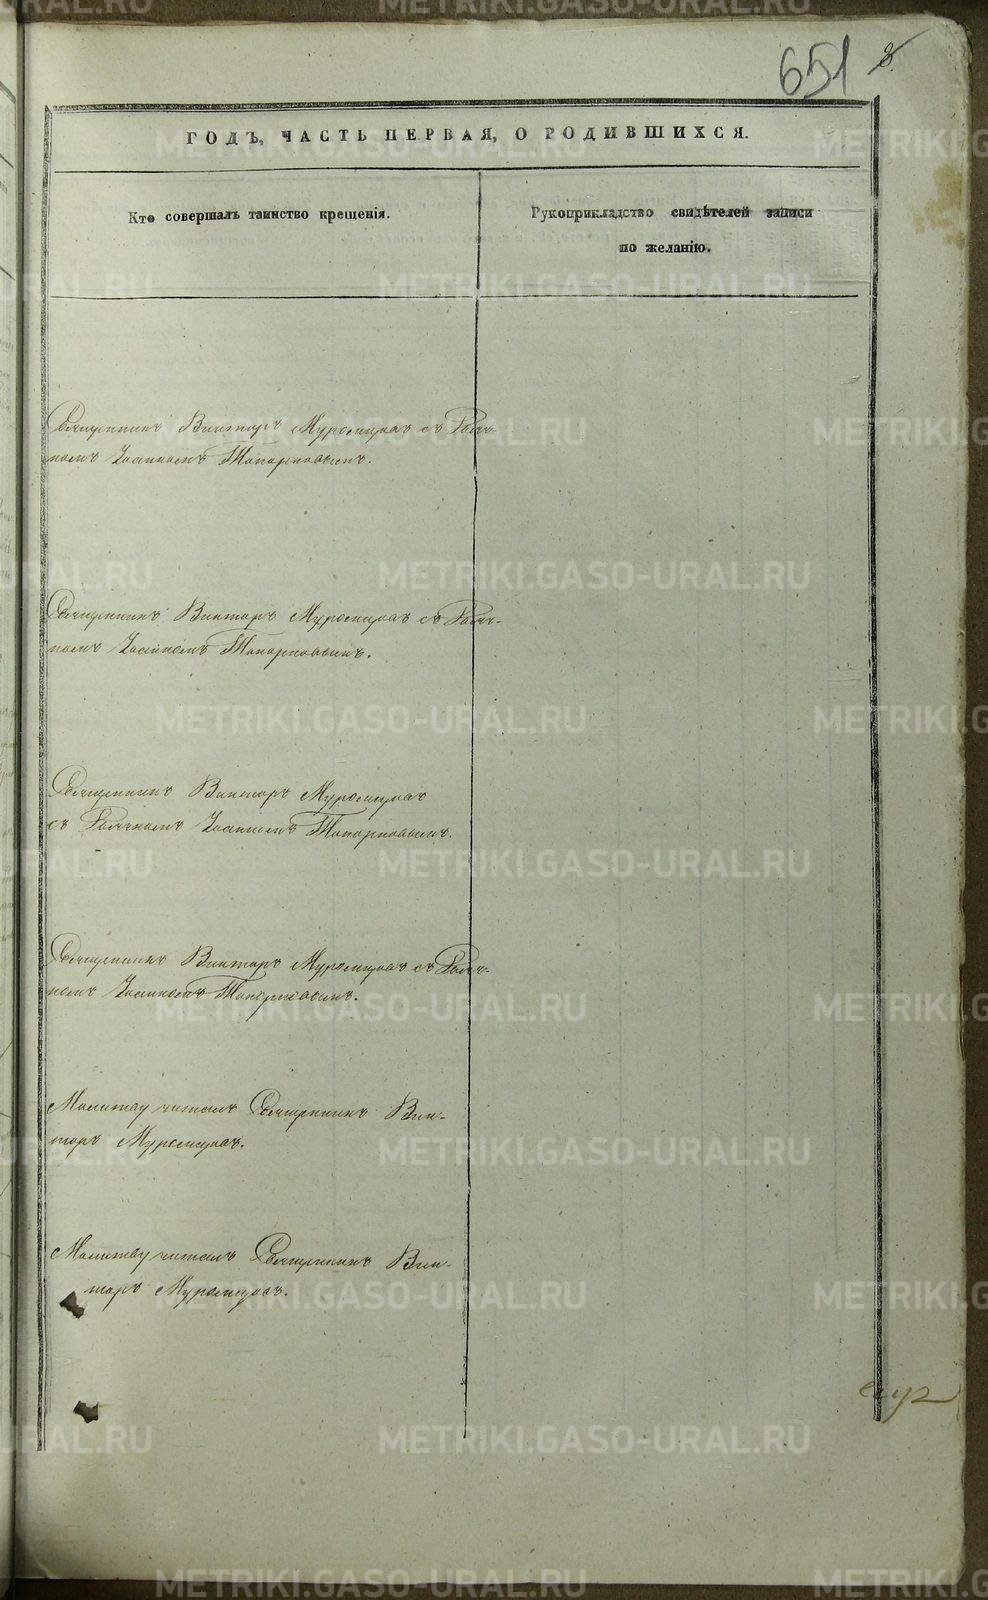 651 8.
ГОДЪ, ЧАСТЬ ПЕРВАЯ, О РОДИВШИХСЯ.
Кто совершалъ таинство крещенія.
Рукоприкладство свидѣтелей записи
по желанію.
Священникъ Викторъ Муромцовъ съ
Топорковымъ.
Священникъ Викторъ Муромцовъ съ
Топорковымъ.
Священникъ Викторъ Муромцовъ
съ Топорковымъ.
Священникъ Викторъ Муромцовъ съ
Топорковымъ.
Молитву читалъ Священникъ Вик-
торъ Муромцовъ.
Молитву читалъ Священникъ Вик-
торъ Муромцовъ.
METRIKI.GASO-URAL.RU